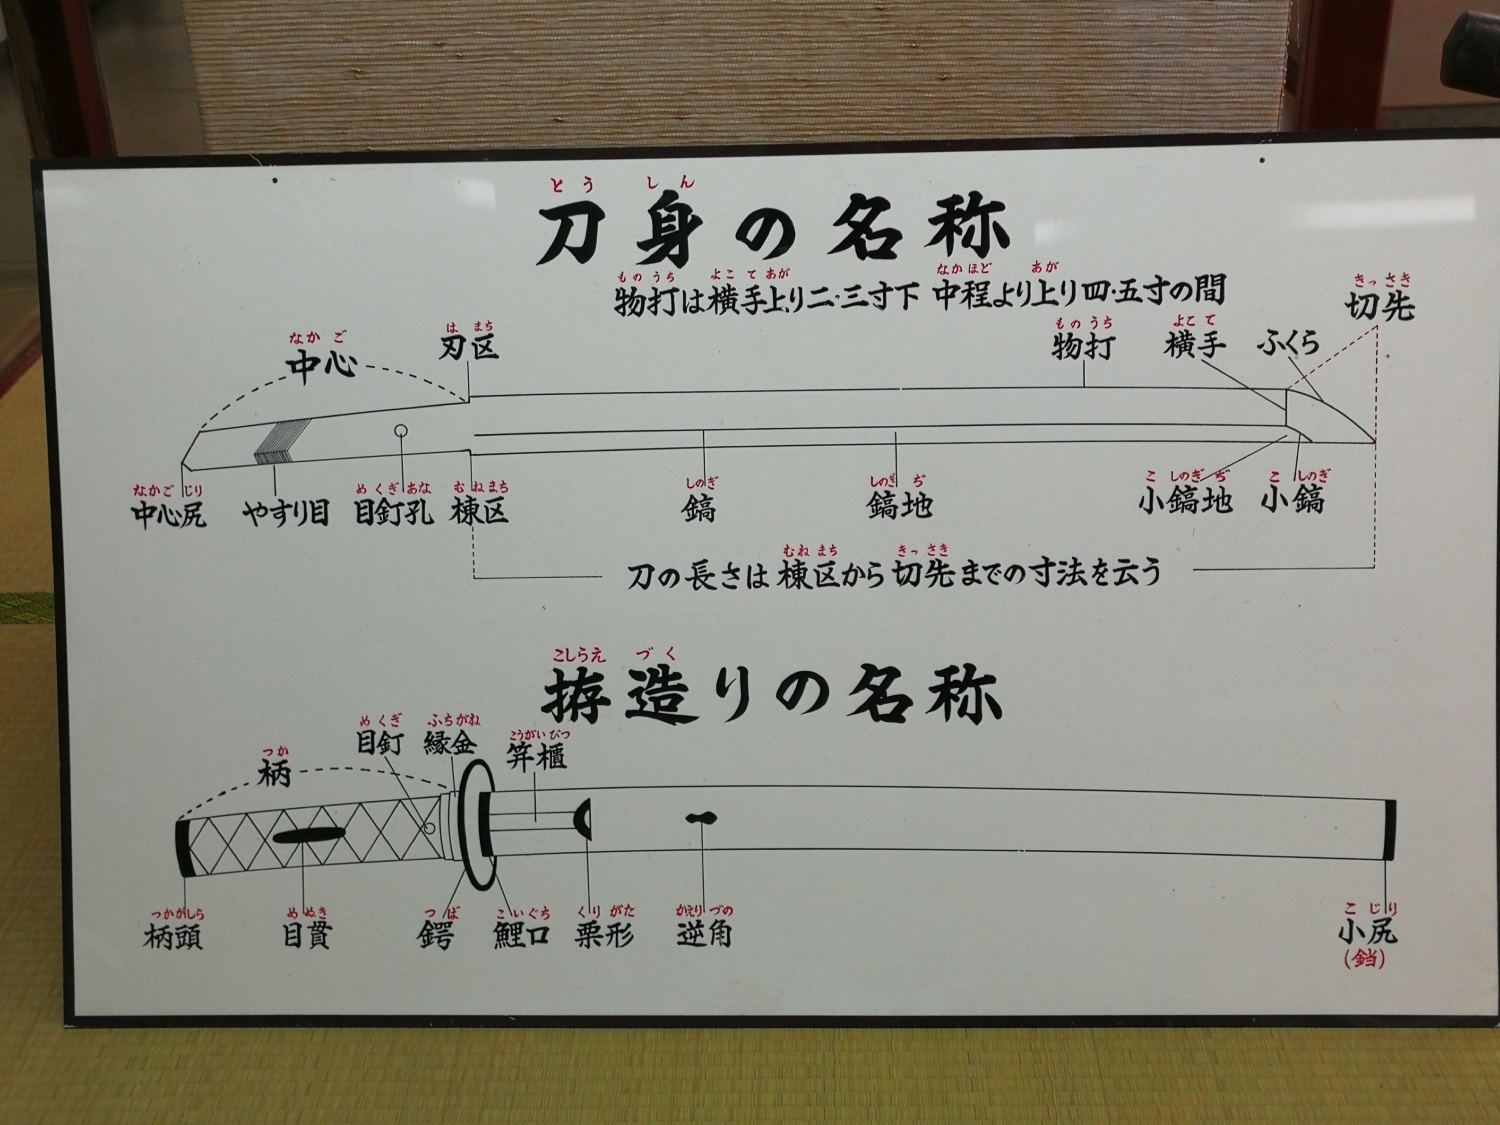 とうしん
刀身の名称
ものうち よこ て あが なかほど あが
物打は横手上り二・三寸下 中程より上り四・五寸の間
きっさき
切先
なかご
中心
は まち
刃区
ものうち
物打
よこ て
横手
ふくら
なかご じり
中心尻
やすり目
めくぎあな
目釘孔
むねまち
棟区
しのぎ
鎬
しのぎ ぢ
鎬地
こ しのぎ ぢ
小鎬地
こ しのぎ
小鎬
むね まち きっ さき
刀の長さは棟区から切先までの寸法を云う
こしらえ づく
拵造りの名称
つか
柄
めくぎ
目釘
ふちがね
縁金
こうがいびつ
笄櫃
つかがしら
柄頭
めぬき
目貫
つば
鍔
こいぐち
鯉口
くり がた
栗形
かえり づの
逆角
こ じり
小尻
(鐺)